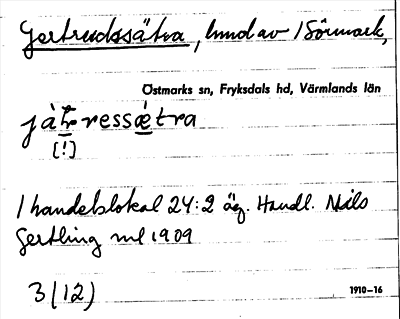 Gertrudssätra, lund av 1 Sörmark,
Östmarks sn, Fryksdals hd, Värmlands län
jàt̀ressǽtra
[!]
1 handelslokal 24:2 äg. Handl. Nils
Gertling
3 (12)
1910–16